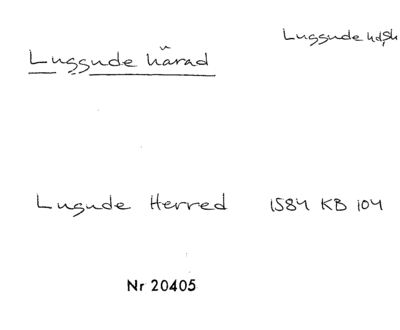 Luggude hd, Sk
Luggude härad
Lugude Herred 1584 KB 104
Nr 20405